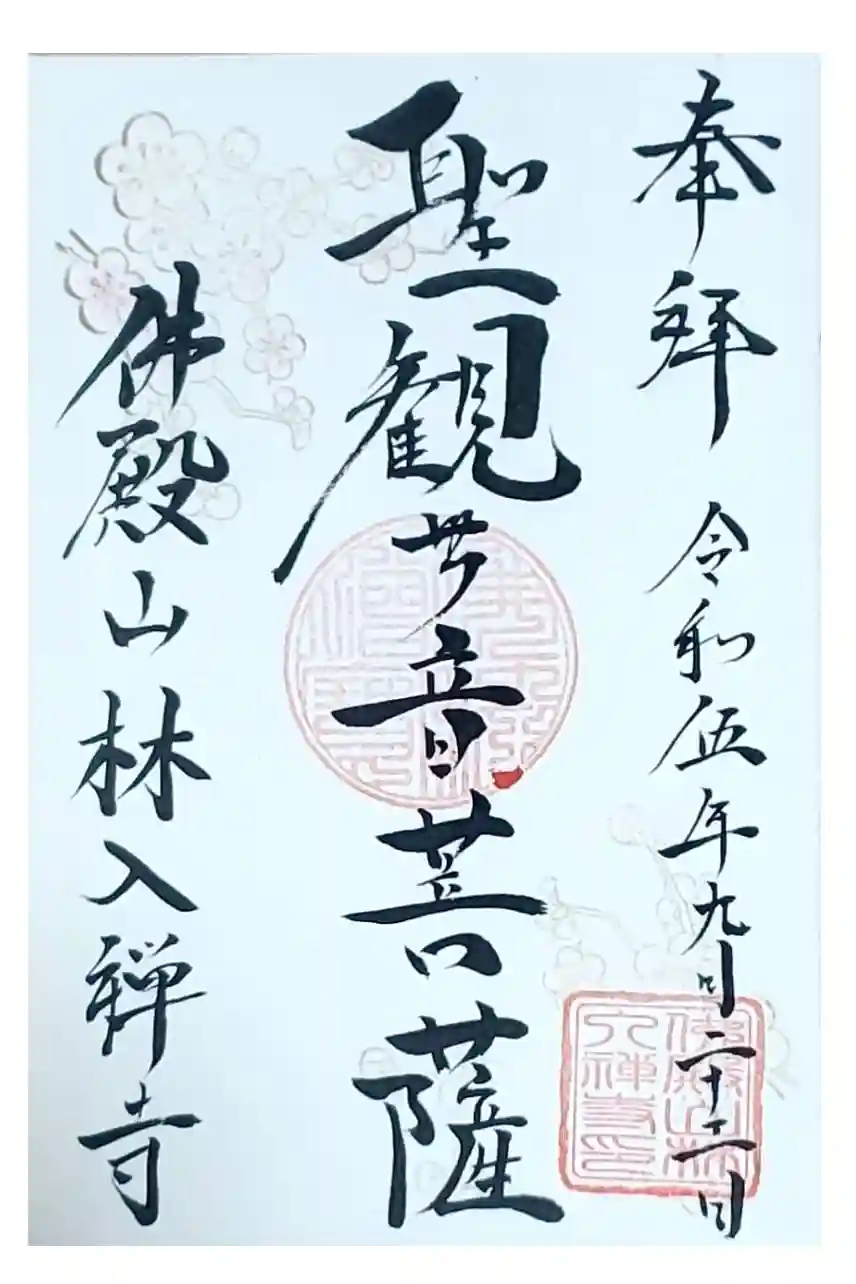 奉拝 令和伍年九月二十二日
聖観世音菩薩
佛殿山林入禅寺
佛殿山林入禅寺印